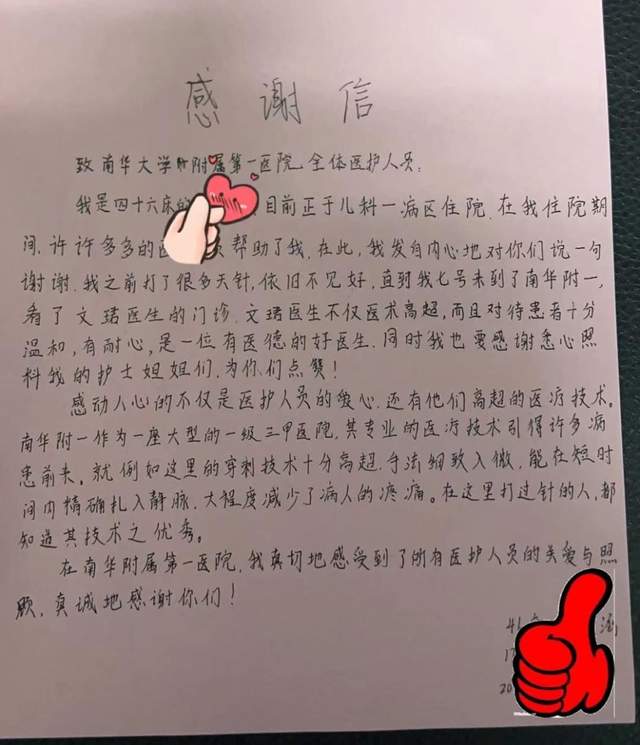 感谢信
致南华大学附属第一医院全体医护人员:
我是四十六床的 目前正于儿科一病区住院.在我住院期
间,许许多多的医 帮助了我.在此,我发自内心地对你们说一句
谢谢.我之前打了很多天针,依旧不见好,直到我七号来到了南华附一,
看了文珺医生的门诊.文珺医生不仅医术高超,而且对待患者十分
温和,有耐心,是一位有医德的好医生.同时我也要感谢悉心照
料我的护士姐姐们.为你们点赞!
感动人心的不仅是医护人员的爱心.还有他们高超的医疗技术.
南华附一作为一座大型的一级三甲医院,其专业的医疗技术引得许多病
患前来.就例如这里的穿刺技术十分高超.手法细致入微,能在短时
间内精确扎入静脉.大程度减少了病人的疼痛。在这里打过针的人,都
知道其技术之优秀。
在南华附属第一医院,我真切地感受到了所有医护人员的关爱与照
顾.真诚地感谢你们!
41 涵
1
20